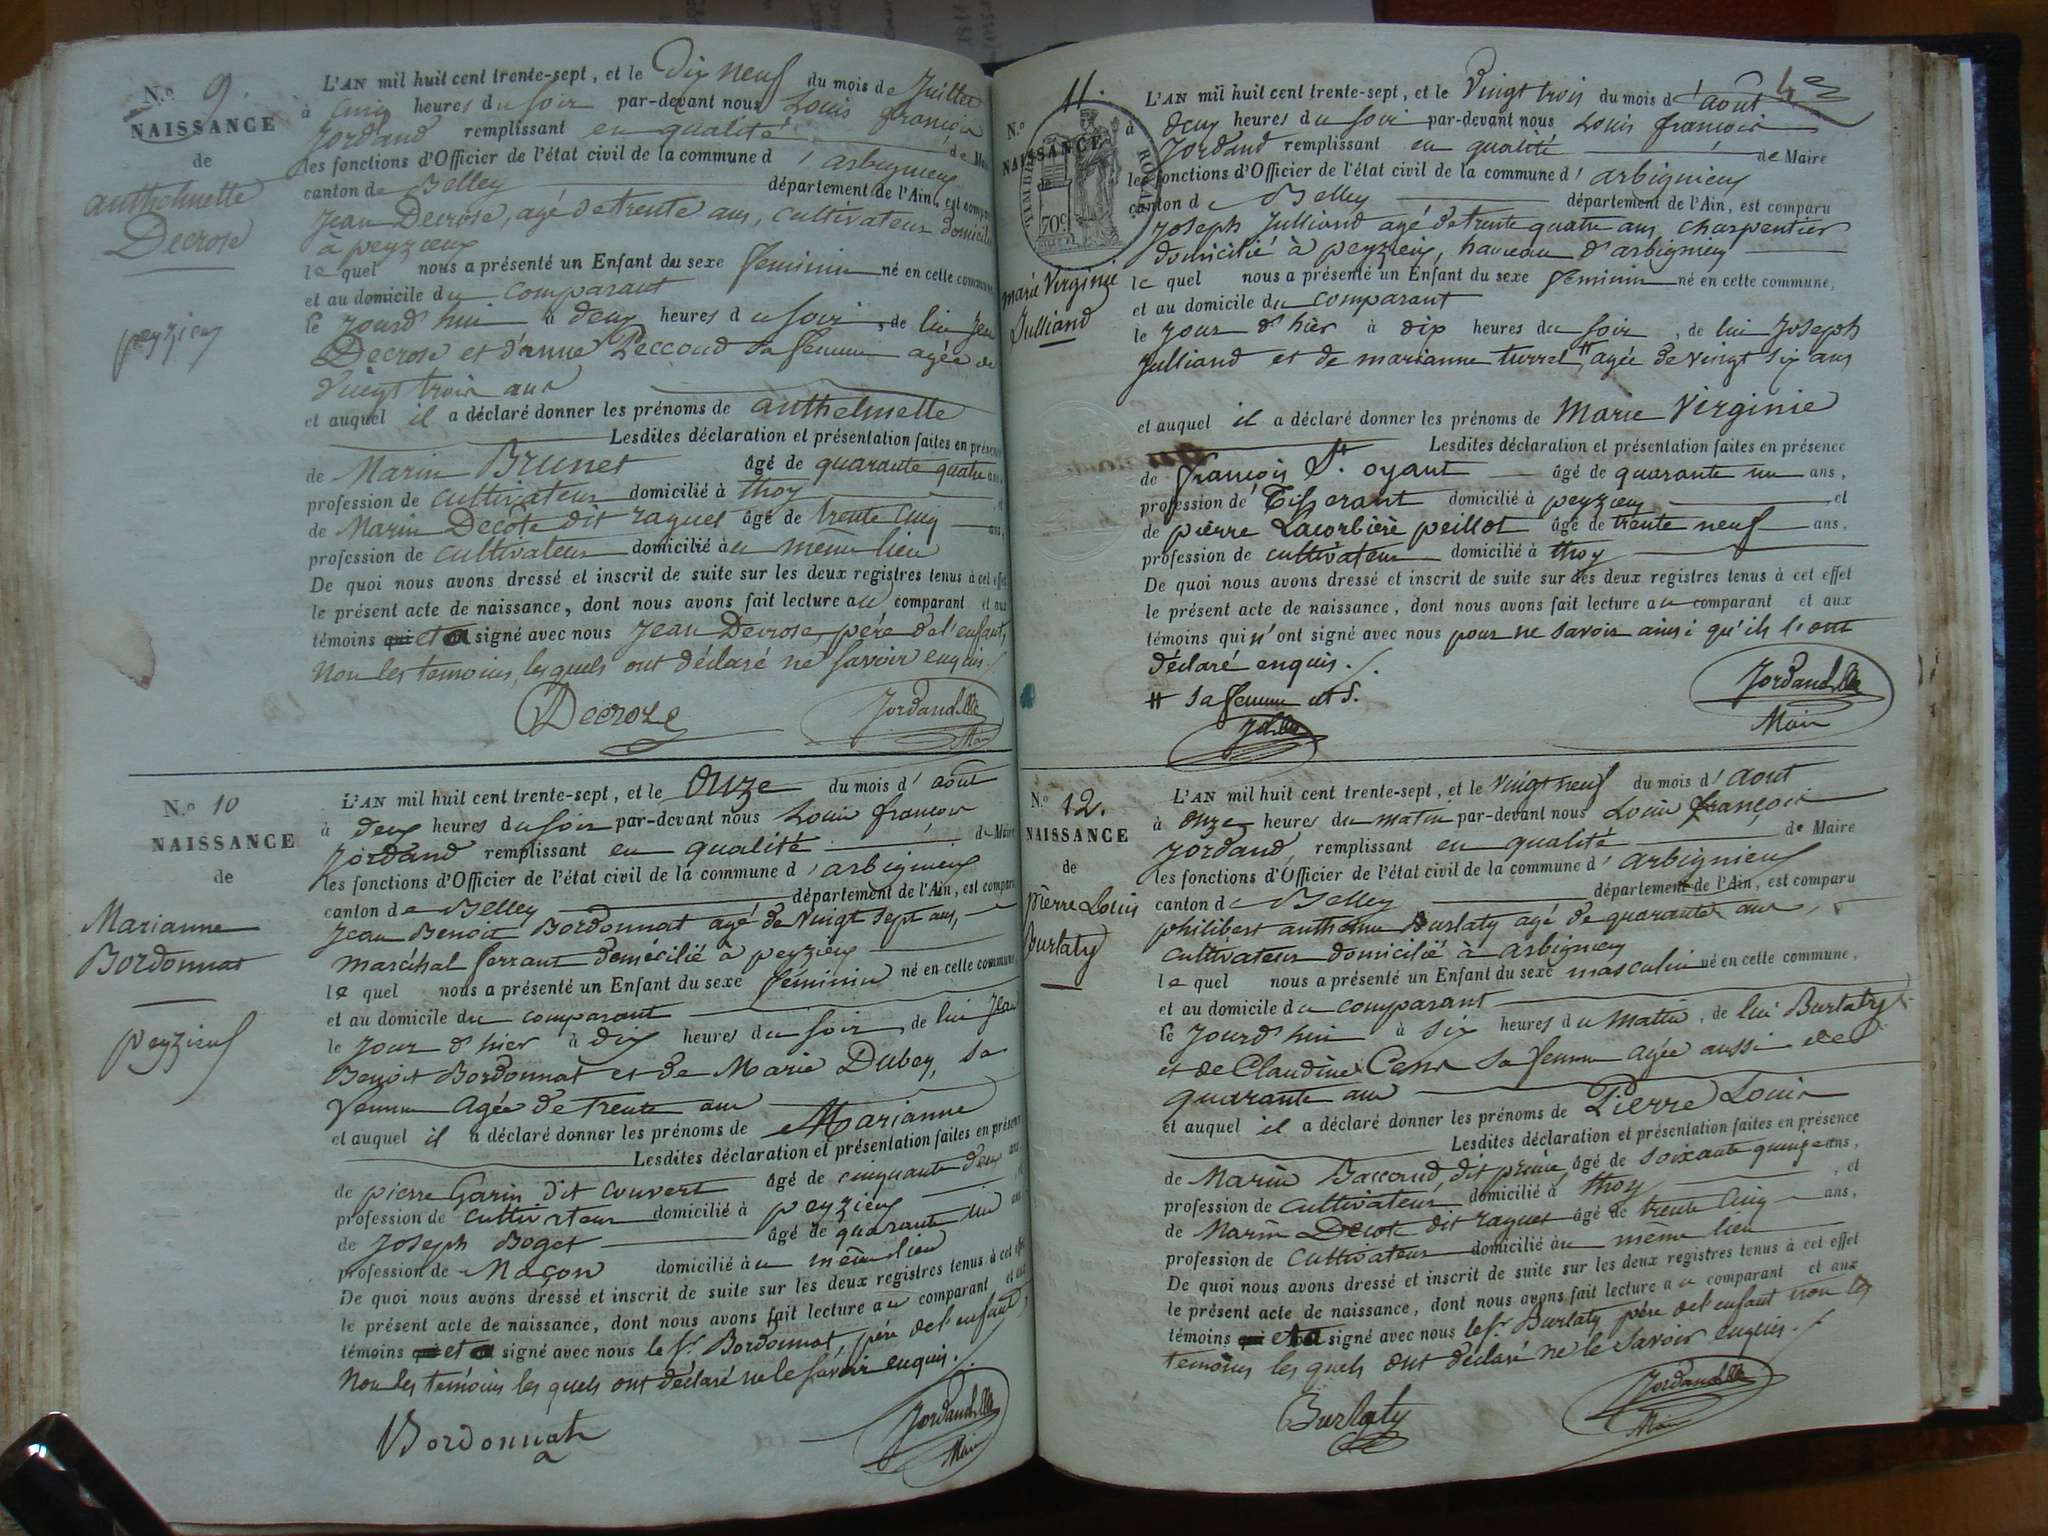 N.º 9.
NAISSANCE
de
anthelmette
Decrose
peyzieu
L'AN mil huit cent trente-sept, et le Dix neuf du mois de Juillet
à cinq heures du soir par-devant nous Louis françois
Jordand remplissant en qualité de Maire
les fonctions d'Officier de l'état civil de la commune d'arbignieu
canton de Belley département de l'Ain, est comparu
Jean Decrose, agé de trente ans, cultivateur domicilié
à peyzieux
le quel nous a présenté un Enfant du sexe feminin né en cette commune
et au domicile du comparant
le jourd'hui à deux heures du soir, de lui Jean
Decrose et d'anne Peccoud sa femme agée de
vingt trois ans
et auquel il a déclaré donner les prénoms de anthelmette
Lesdites déclaration et présentation faites en présence
de Marin Brunet âgé de quarante quatre ans
profession de cultivateur domicilié à thoy et
de Marin Decôte dit raquet âgé de trente cinq ans,
profession de cultivateur domicilié au même lieu
De quoi nous avons dressé et inscrit de suite sur les deux registres tenus à cet effet
le présent acte de naissance, dont nous avons fait lecture au comparant et aux
témoins qui et a signé avec nous Jean Decrose, père de l'enfant,
Non les temoins, les quels ont déclaré ne savoir enquis./
Decroze Jordand
Maire
N.º 10
NAISSANCE
de
Marianne
Bordonnat
peyzieu
L'AN mil huit cent trente-sept, et le onze du mois d'août
à deux heures du soir par-devant nous Louis françois
Jordand remplissant en qualité de Maire
les fonctions d'Officier de l'état civil de la commune d'arbignieu
canton de Belley département de l'Ain, est comparu
Jean Benoit Bordonnat agé de vingt sept ans,
maréchal ferrant domicilié à peyzieu
le quel nous a présenté un Enfant du sexe féminin né en cette commune
et au domicile du comparant
le jour d'hier à dix heures du soir, de lui Jean
Benoit Bordonnat et de Marie Dubey, sa
femme agée de trente ans
et auquel il a déclaré donner les prénoms de Marianne
Lesdites déclaration et présentation faites en présence
de pierre Garin dit couvert âgé de cinquante deux ans
profession de cultivateur domicilié à peyzieu
de Joseph Boget âgé de quarante un ans
profession de Maçon domicilié au même lieu
De quoi nous avons dressé et inscrit de suite sur les deux registres tenus à cet effet
le présent acte de naissance, dont nous avons fait lecture au comparant et aux
témoins qui et a signé avec nous le Sr. Bordonnat, père de l'enfant,
Non les temoins les quels ont déclaré ne le savoir enquis./
Bordonnat Jordand
Maire
N.º 11.
NAISSANCE
de
TIMBRE ROYAL
70c.
marie Virginie
Julliand
L'AN mil huit cent trente-sept, et le Vingt trois du mois d'août
deux heures du soir par-devant nous Louis françois
Jordand remplissant en qualité de Maire
les fonctions d'Officier de l'état civil de la commune d'arbignieu
canton de Belley département de l'Ain, est comparu
Joseph Julliand agé de trente quatre ans, charpentier
domicilié à peyzieu, hameau d'arbignieu
le quel nous a présenté un Enfant du sexe féminin né en cette commune,
et au domicile du comparant
le jour d'hier à dix heures du soir, de lui Joseph
Julliand et de marianne turrel # agée de vingt six ans
et auquel il a déclaré donner les prénoms de Marie Virginie
Lesdites déclaration et présentation faites en présence
de françois St. oyant âgé de quarante un ans,
profession de Tisserant domicilié à peyzieu et
de pierre Lacorbière peillot âgé de trente neuf ans,
profession de cultivateur domicilié à thoy
De quoi nous avons dressé et inscrit de suite sur les deux registres tenus à cet effet
le présent acte de naissance, dont nous avons fait lecture au comparant et aux
témoins qui n'ont signé avec nous pour ne savoir ainsi qu'ils l'ont
déclaré enquis./.
# sa femme
Jordand
Maire
N.º 12.
NAISSANCE
de
pierre Louis
Burlaty
L'AN mil huit cent trente-sept, et le vingt neuf du mois d'aout
à onze heures du matin par-devant nous Louis françois
Jordand, remplissant en qualité de Maire
les fonctions d'Officier de l'état civil de la commune d'arbignieu
canton de Belley département de l'Ain, est comparu
philibert anthelme Burlaty agé de quarante ans,
cultivateur domicilié à arbignieu
le quel nous a présenté un Enfant du sexe masculin né en cette commune,
et au domicile du comparant
le jourd'hui à six heures du matin, de lui Burlaty
et de Claudine sa femme agée aussi de
quarante ans
et auquel il a déclaré donner les prénoms de Pierre Louis
Lesdites déclaration et présentation faites en présence
de Marin Baccoud, dit âgé de soixante quinze ans,
profession de cultivateur domicilié à thoy, et
de Marin Decot dit raquet âgé de trente cinq ans,
profession de cultivateur domicilié au même lieu
De quoi nous avons dressé et inscrit de suite sur les deux registres tenus à cet effet
le présent acte de naissance, dont nous avons fait lecture au comparant et aux
témoins qui et a signé avec nous le Sr. Burlaty père de l'enfant non les
temoins les quels ont déclaré ne le savoir enquis./
Burlaty Jordand
Maire